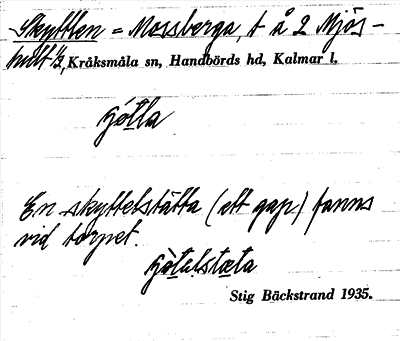 Skyttlen = Mossberga, t å 2 Mjös-
hult ½, Kråksmåla sn, Handbörds hd, Kalmar l.
En skyttelstätta (ett gap) fanns
vid torpet.
Stig Bäckstrand 1935.